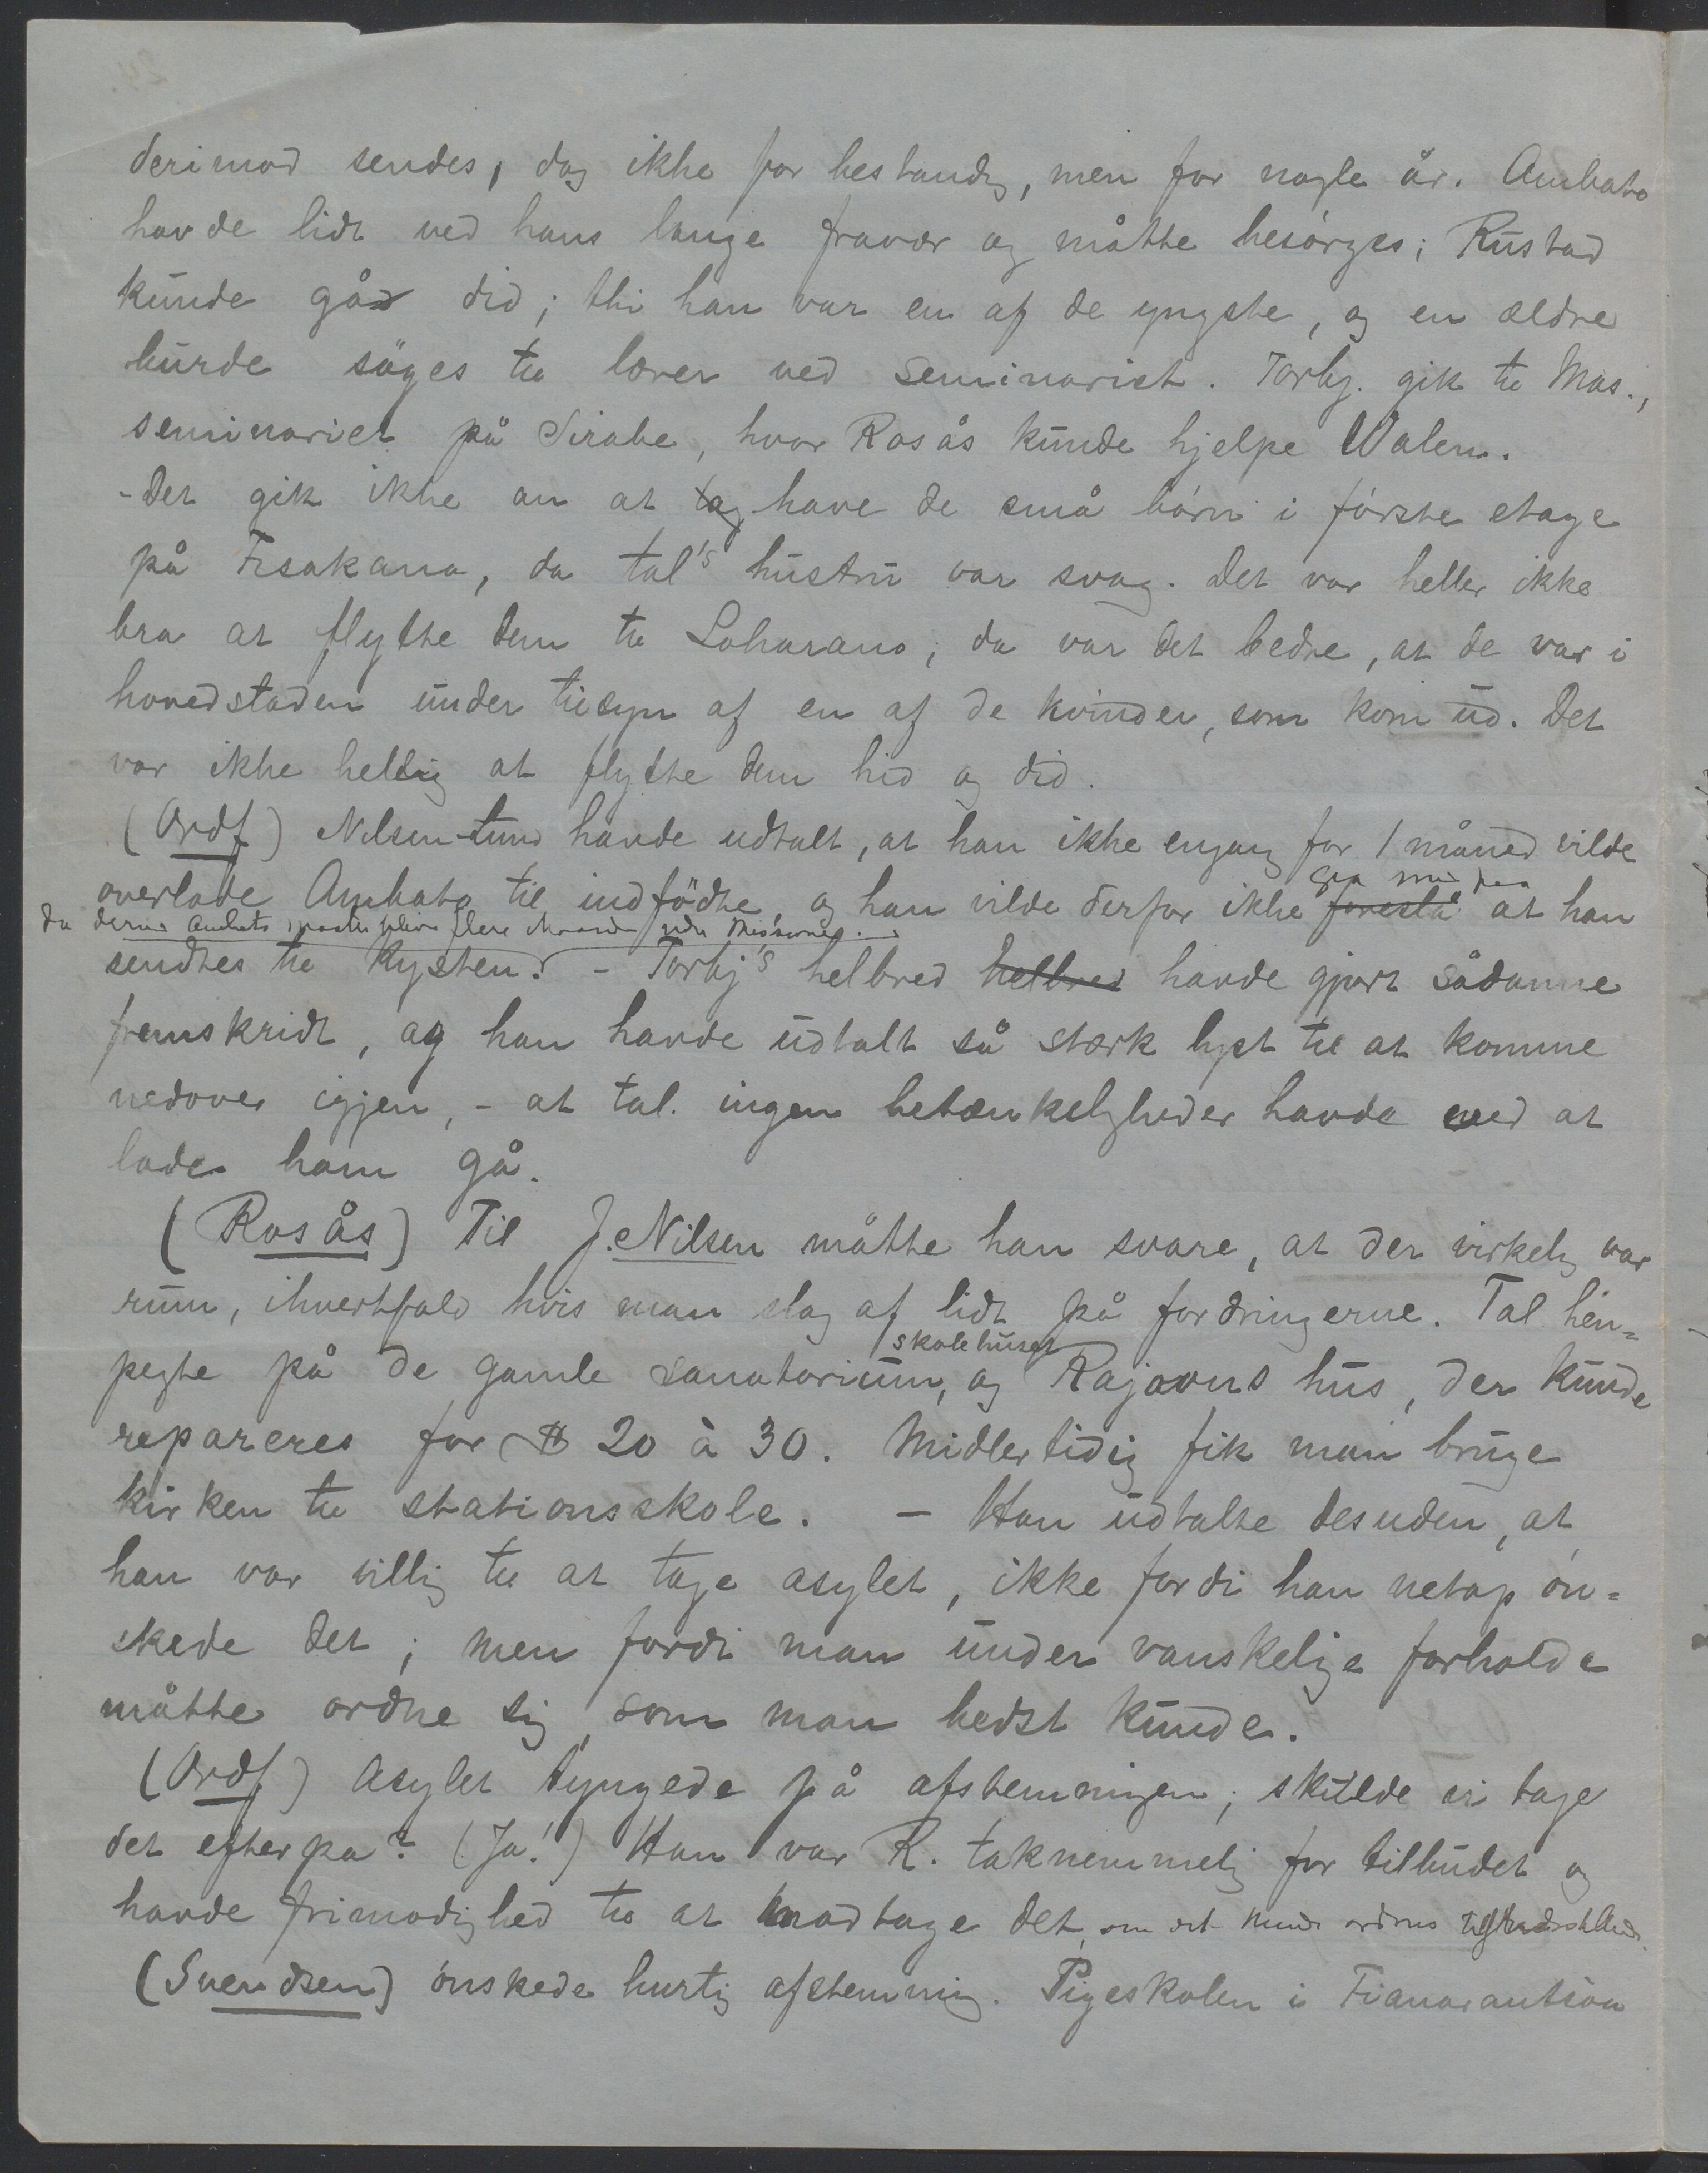 derimod sendes, dog ikke for bestandig, men for nogle år. Ambato
havde lidt ved hans lange fravær og måtte besørges; Rustad
kunde gå did; thi han var en af de yngste, og en ældre
burde søges til lærer ved seminariet. Torbj. gik til Mas.,
seminariet på Sirabe, hvor Rosås kunde hjelpe Walen.
- Det gik ikke an at tag have de små børn i første etage
på Fisakana, da tal's hustru var svag. Det var heller ikke
bra at flytte dem til Loharano; da var det bedre, at de var i
hovedstaden under tilsyn af en af de kvinder, som kom ud. Det
var ikke heldig at flytte dem hid og did.
(Ordf) Nilsen-Lund havde udtalt, at han ikke engang for 1 måned vilde
overlade Ambato til indfødte, og han vilde derfor ikke foreslå at han
da Ambato flere
sendtes til Kysten. - Torbj's helbred helbred havde gjort sådanne
fremskridt, og han havde udtalt så stærk lyst til at komme
nedover igjen, - at tal. ingen betænkeligheder havde ved at
lade ham gå.
(Rosås) Til J. Nilsen måtte han svare, at der virkelig var
rum, ihvertfald hvis man slog af lidt på fordringerne. Tal. hen=
skolehuset
pegte på de gamle sanatorium, og Rajaonas hus, der kunde
repareres for $ 20 à 30. Midlertidig fik man bruge
kirken til stationsskole. - Han udtalte desuden, at
han var villig til at tage asylet, ikke fordi han netop øn=
skede det; men fordi man under vanskelige forholde
måtte ordne sig, som man bedst kunde.
(Ordf) Asylet tyngede på afstemningen; skulde vi tage
det efterpå? (Ja!) Han var R. taknemmelig for tilbudet og
havde frimodighed til at modtage det, om det kunde ordnes
(Svendsen) ønskede hurtig afstemning. Pigeskolen i Fianarantsoa